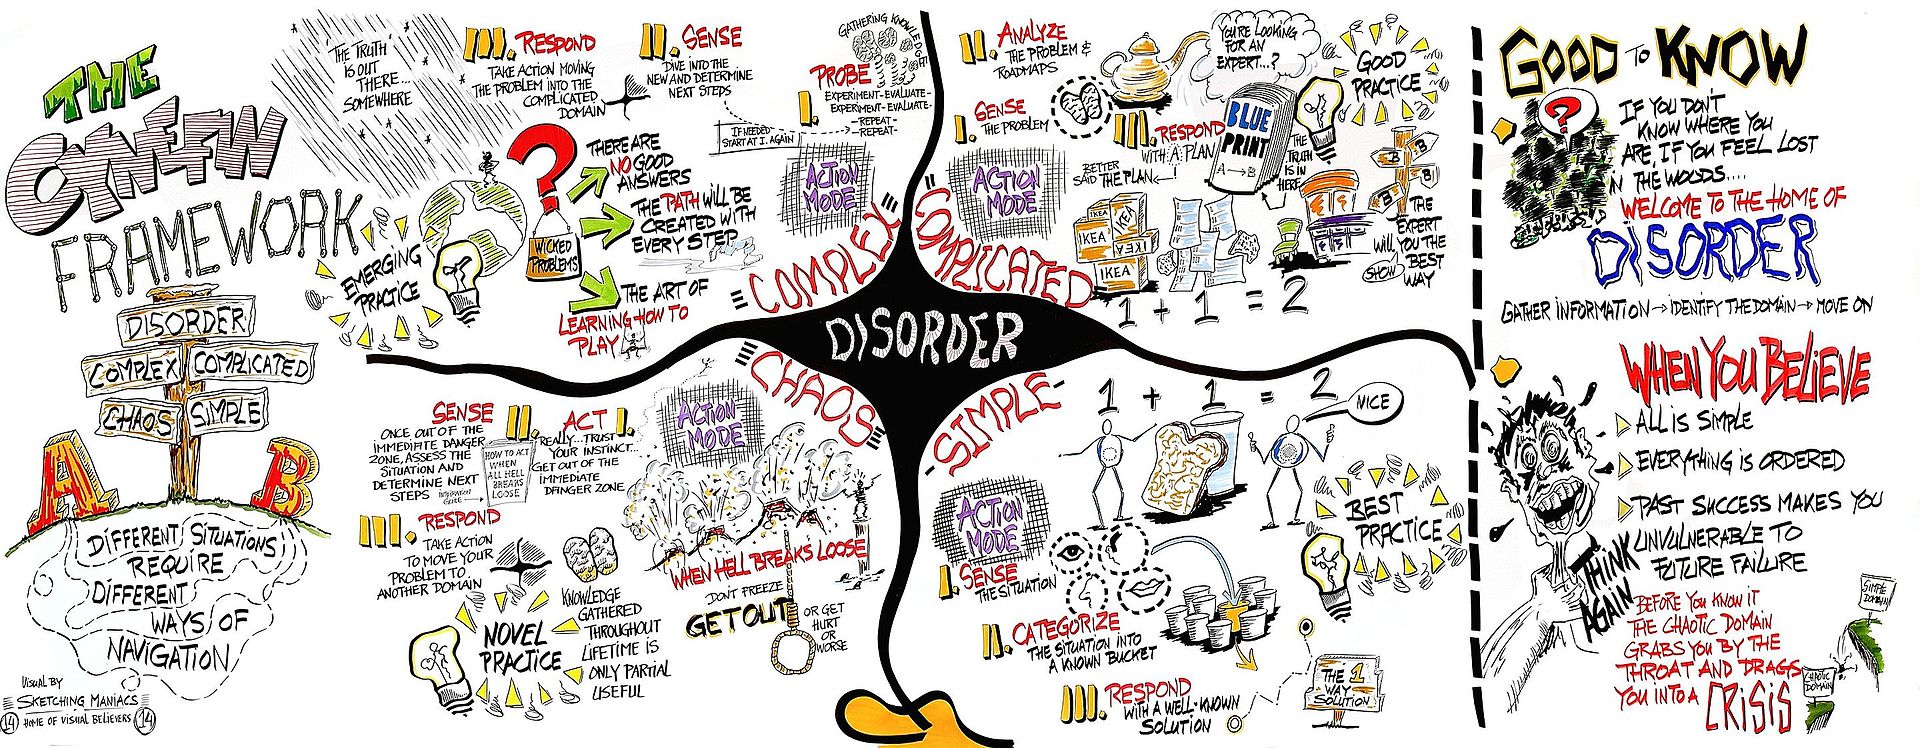 THE
CYNEFIN
FRAMEWORK
DISORDER
COMPLEX
COMPLICATED
CHAOS
SIMPLE
A
B
DIFFERENT SITUATIONS
REQUIRE
DIFFERENT
WAYS OF
NAVIGATION
VISUAL BY
SKETCHING MANIACS
14 HOME OF VISUAL BELIEVERS 14
'THE TRUTH'
IS OUT
THERE...
SOMEWHERE
III. RESPOND
TAKE ACTION MOVING
THE PROBLEM INTO THE
COMPLICATED
DOMAIN
II. SENSE
DIVE INTO THE
NEW AND DETERMINE
NEXT STEPS
GATHERING KNOWLEDGE
PROBE
I.
EXPERIMENT-EVALUATE-
EXPERIMENT-EVALUATE-
-REPEAT-
-REPEAT-
IF NEEDED
START AT I. AGAIN
ACTION
MODE
?
WICKED
PROBLEMS
THERE ARE
NO GOOD
ANSWERS
THE PATH WILL BE
CREATED WITH
EVERY STEP
THE ART OF
LEARNING HOW TO
PLAY
EMERGING
PRACTICE
COMPLEX
COMPLICATED
DISORDER
CHAOS
SIMPLE
II. ANALYZE
THE PROBLEM &
ROADMAPS
I. SENSE
THE PROBLEM
III. RESPOND
WITH A PLAN
BETTER
SAID THE PLAN
YOU'RE LOOKING
FOR AN
EXPERT...?
BLUE
PRINT
A → B
THE
TRUTH
IS IN
HERE
GOOD
PRACTICE
B
B
B
B
ACTION
MODE
IKEA
IKEA
IKEA
IKEA
IKEA
THE
EXPERT
WILL YOU THE
SHOW BEST
WAY
1 + 1 = 2
SENSE
II.
ONCE OUT OF THE
IMMEDIATE DANGER
ZONE, ASSESS THE
SITUATION AND
DETERMINE NEXT
STEPS
HOW TO ACT
WHEN
ALL HELL
BREAKS
LOOSE
ACT I.
REALLY...TRUST
YOUR INSTINCT...
GET OUT OF THE
IMMEDIATE
DANGER ZONE
ACTION
MODE
III. RESPOND
TAKE ACTION
TO MOVE YOUR
PROBLEM TO
ANOTHER DOMAIN
WHEN HELL BREAKS LOOSE
DON'T FREEZE
GET OUT
OR GET
HURT
OR
WORSE
NOVEL
PRACTICE
KNOWLEDGE
GATHERED
THROUGHOUT
LIFETIME IS
ONLY PARTIAL
USEFUL
1 + 1 = 2
NICE
ACTION
MODE
BEST
PRACTICE
I. SENSE
THE SITUATION
II. CATEGORIZE
THE SITUATION INTO
A KNOWN BUCKET
III. RESPOND
WITH A WELL-KNOWN
SOLUTION
THE 1
WAY
SOLUTION
GOOD TO KNOW
?
IF YOU DON'T
KNOW WHERE YOU
ARE, IF YOU FEEL LOST
IN THE WOODS....
WELCOME TO THE HOME OF
DISORDER
GATHER INFORMATION → IDENTIFY THE DOMAIN → MOVE ON
WHEN YOU BELIEVE
ALL IS SIMPLE
EVERYTHING IS ORDERED
PAST SUCCESS MAKES YOU
UNVULNERABLE TO
FUTURE FAILURE
THINK
AGAIN
BEFORE YOU KNOW IT
THE CHAOTIC DOMAIN
GRABS YOU BY THE
THROAT AND DRAGS
YOU INTO A CRISIS
SIMPLE
DOMAIN
CHAOTIC
DOMAIN